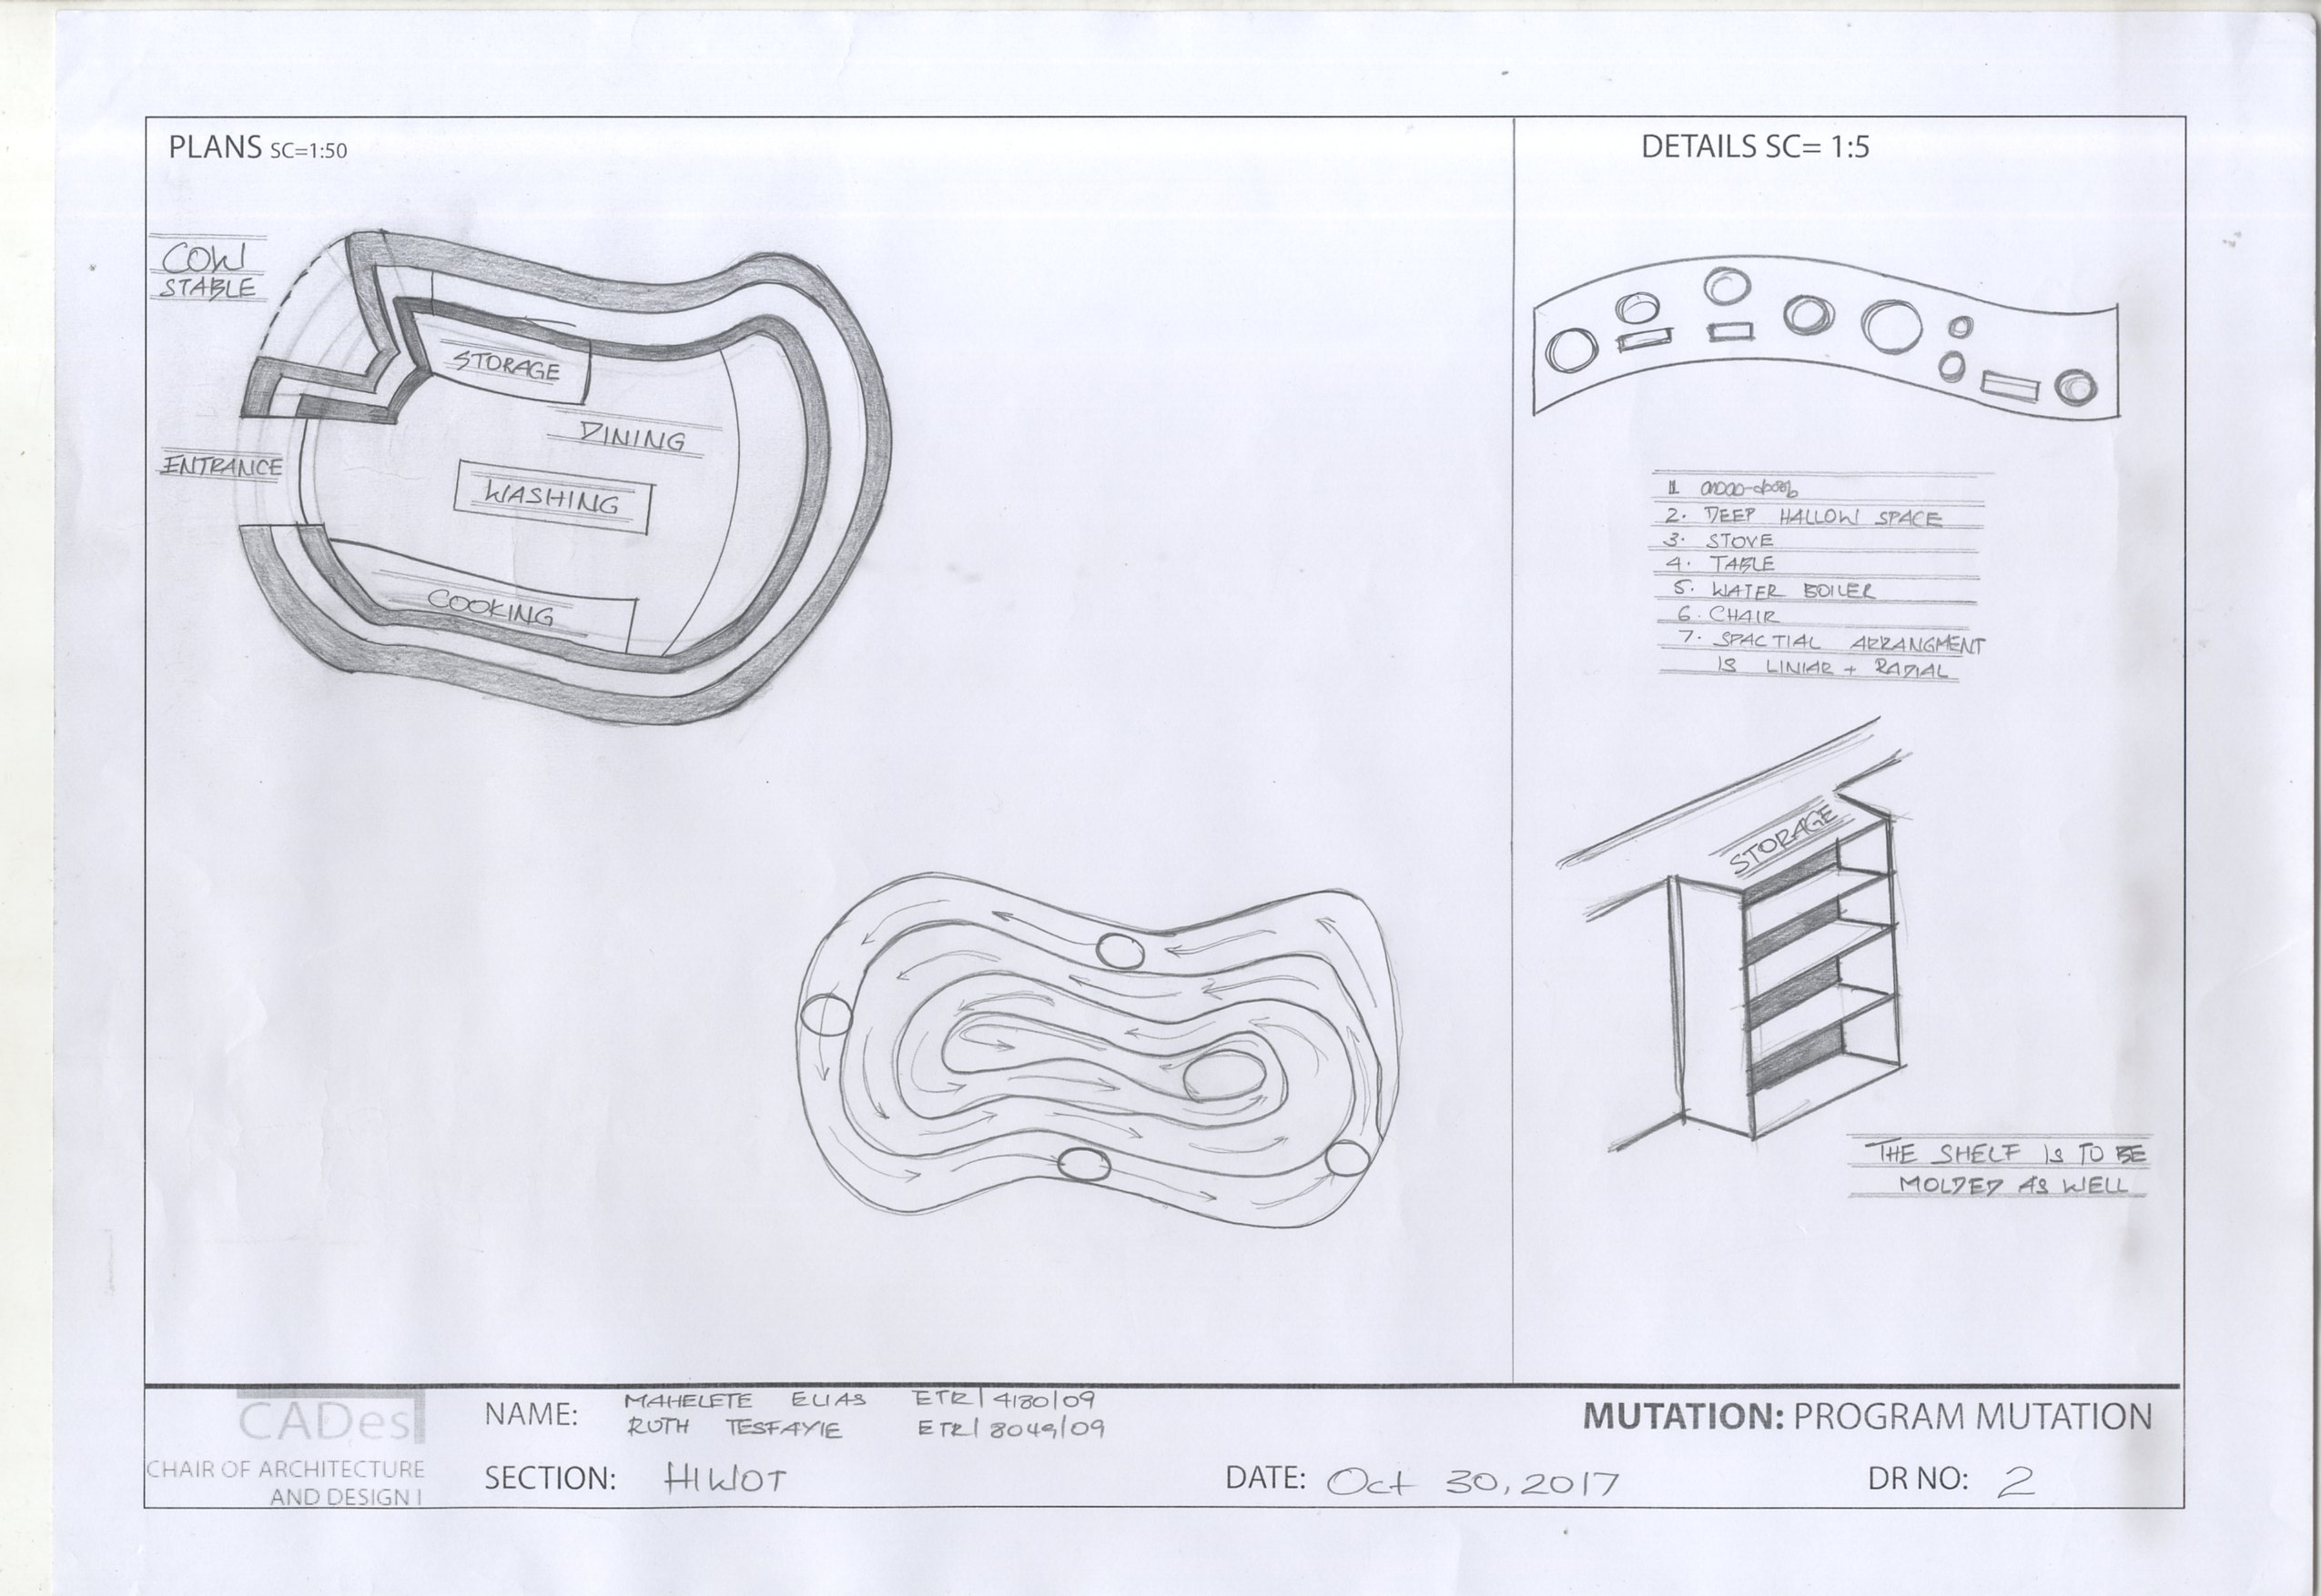 PLANS SC=1:50
COW
STABLE
STORAGE
DINING
ENTRANCE
WASHING
COOKING
DETAILS SC= 1:5
1
2. DEEP HALLOW SPACE
3. STOVE
4. TABLE
5. WATER BOILER
6. CHAIR
7. SPACTIAL ARRANGMENT
IS LINIAR + RADIAL
STORAGE
THE SHELF IS TO BE
MOLDED AS WELL
CADes
CHAIR OF ARCHITECTURE
AND DESIGN I
NAME: MAHELETE ELIAS ETR/4180/09
RUTH TESFAYIE ETR/8049/09
SECTION: HIWOT
DATE: Oct 30, 2017
MUTATION: PROGRAM MUTATION
DR NO: 2